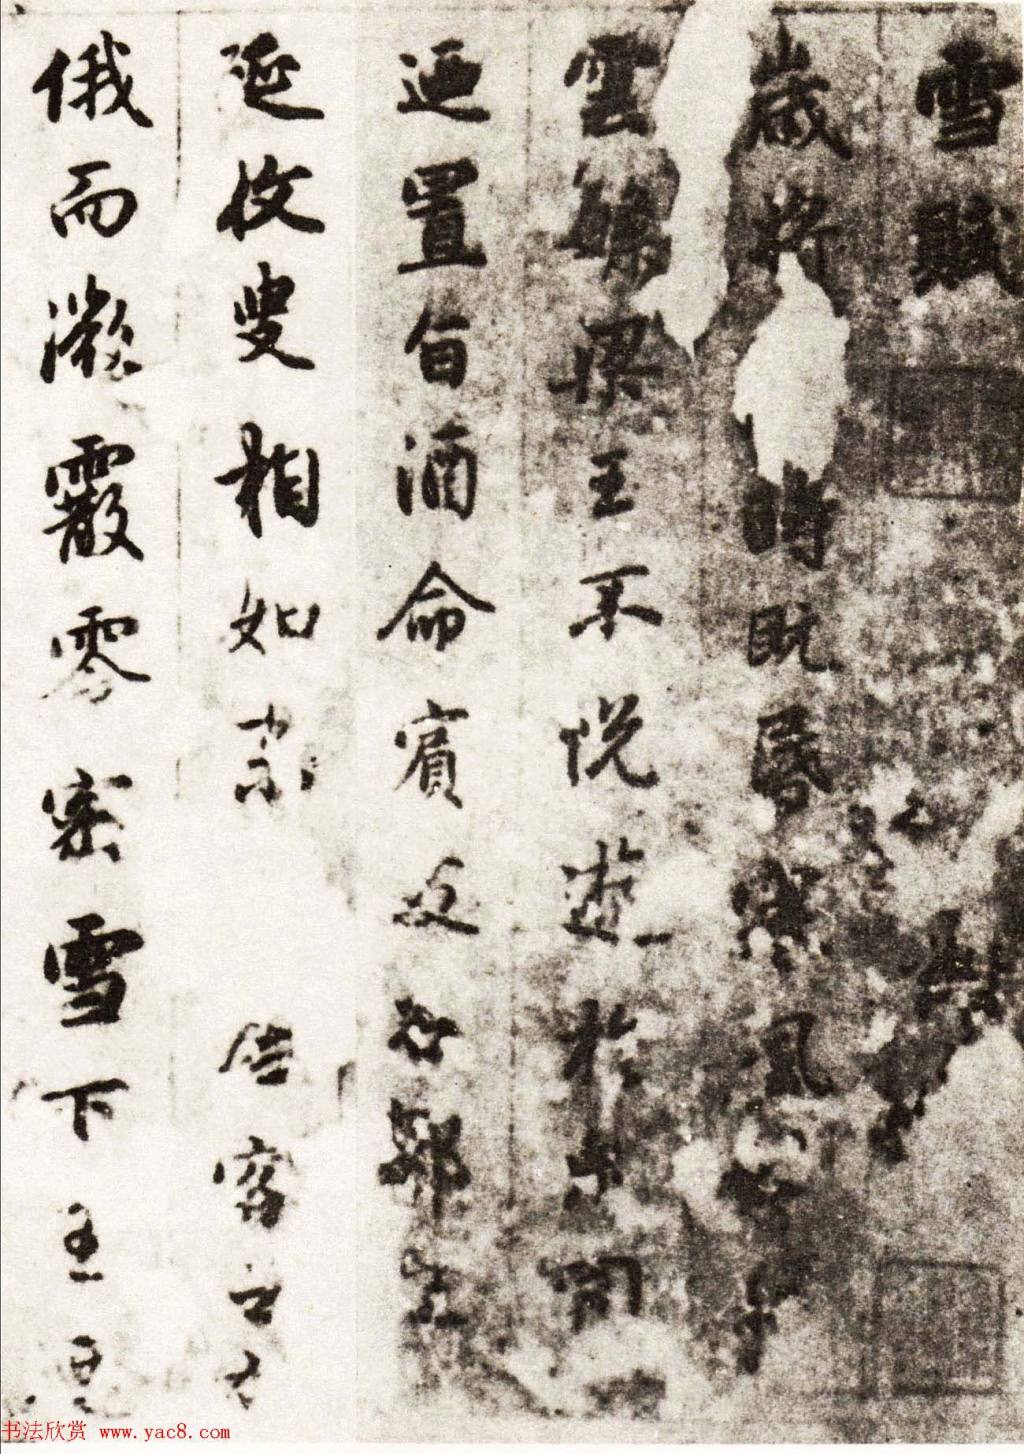 雪賦
歲將時既昏寒風
雲繁梁王不悅遊於兔園
迺置旨酒命賓友召鄒生
延枚叟相如末居客之右
俄而微霰零密雪下王
书法欣赏 www.yac8.com